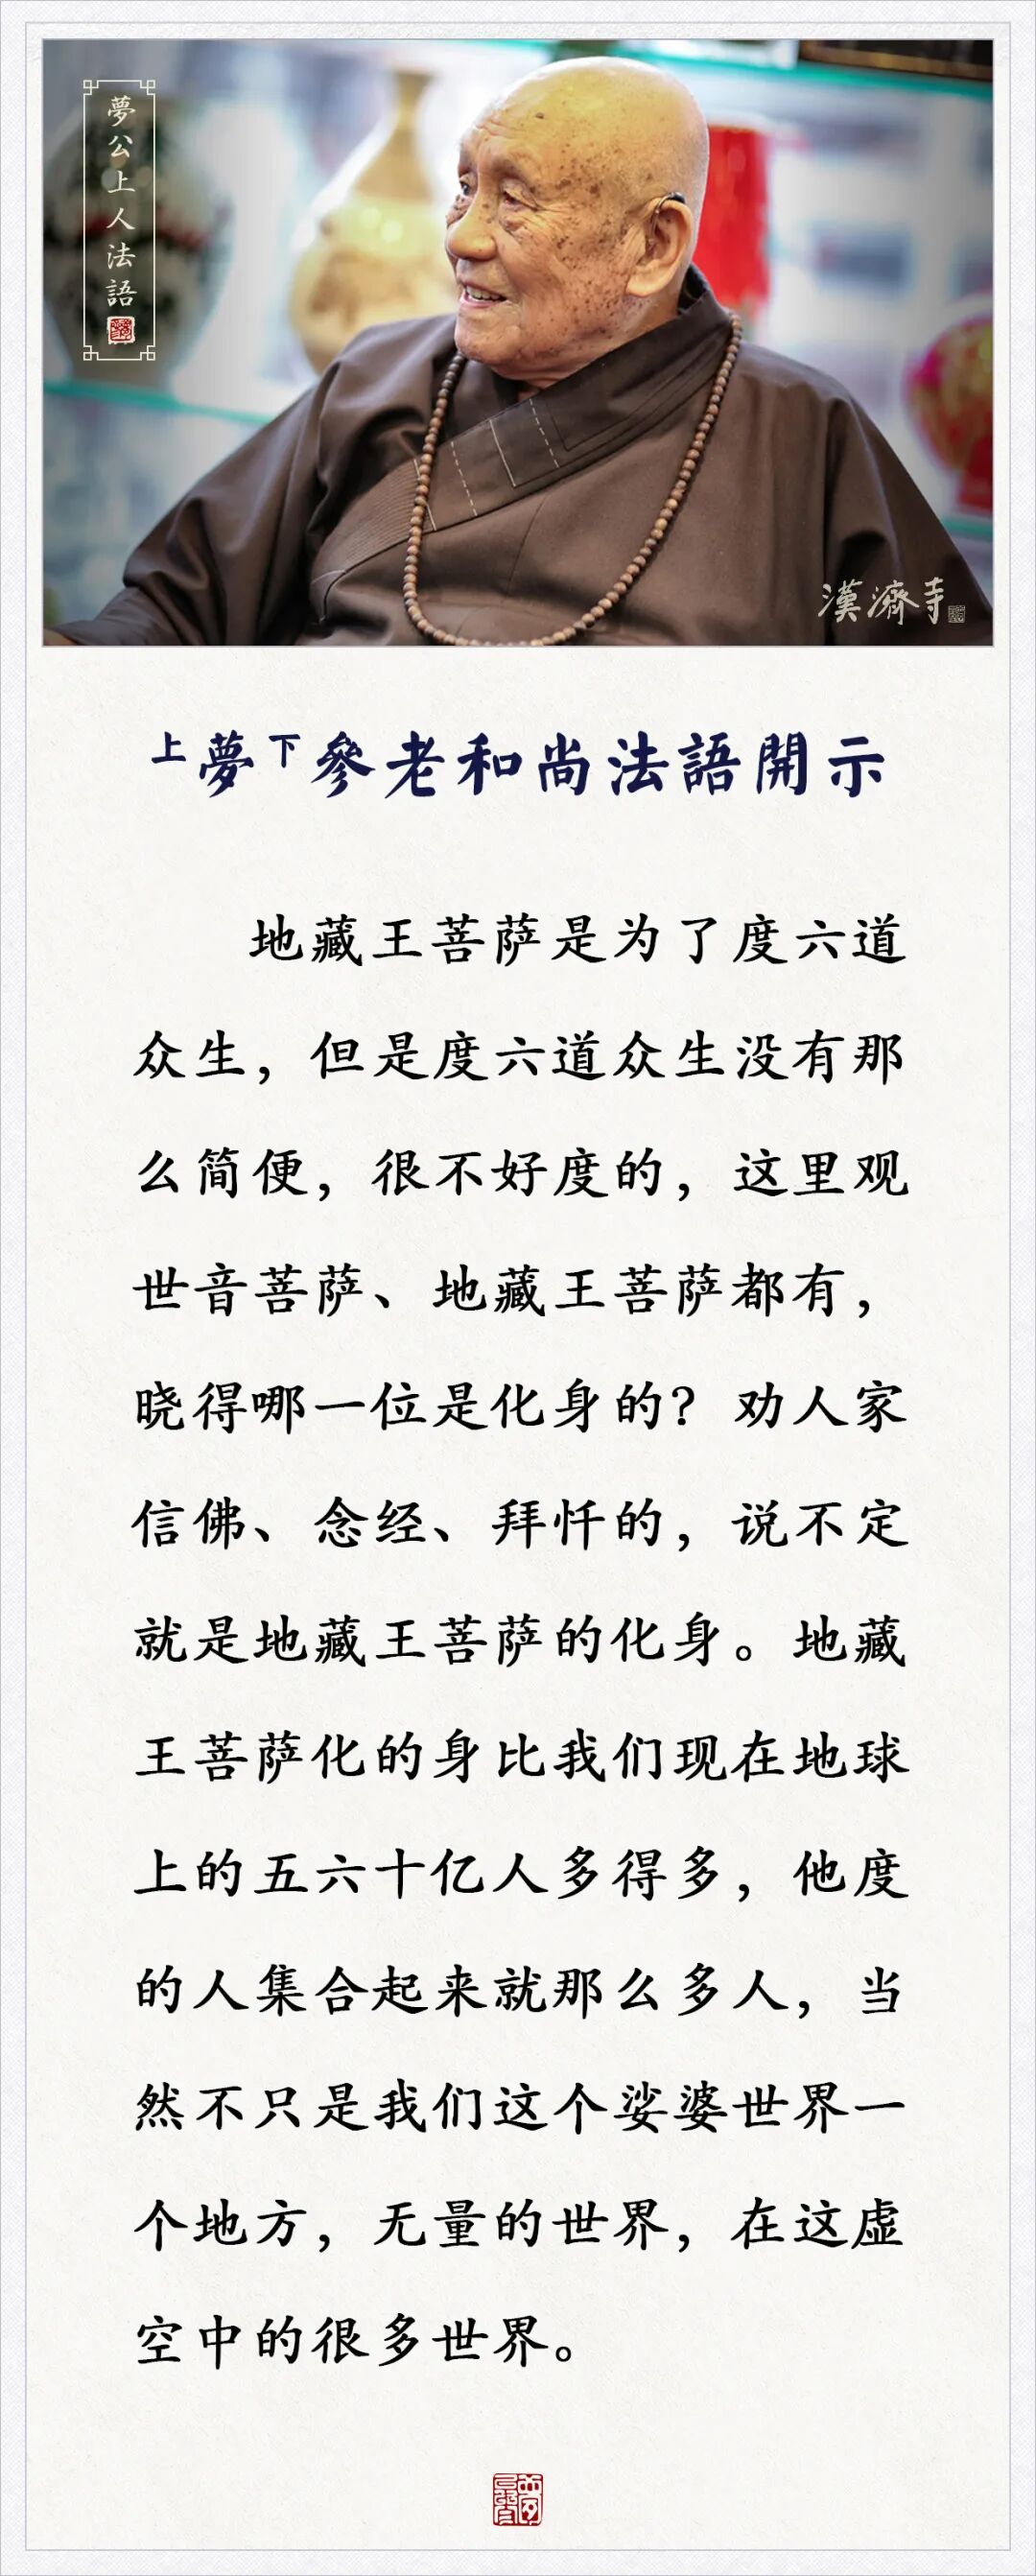 夢公上人法語
漢濟寺
上夢下參老和尚法語開示
地藏王菩萨是为了度六道
众生，但是度六道众生没有那
么简便，很不好度的，这里观
世音菩萨、地藏王菩萨都有，
晓得哪一位是化身的？劝人家
信佛、念经、拜忏的，说不定
就是地藏王菩萨的化身。地藏
王菩萨化的身比我们现在地球
上的五六十亿人多得多，他度
的人集合起来就那么多人，当
然不只是我们这个娑婆世界一
个地方，无量的世界，在这虚
空中的很多世界。